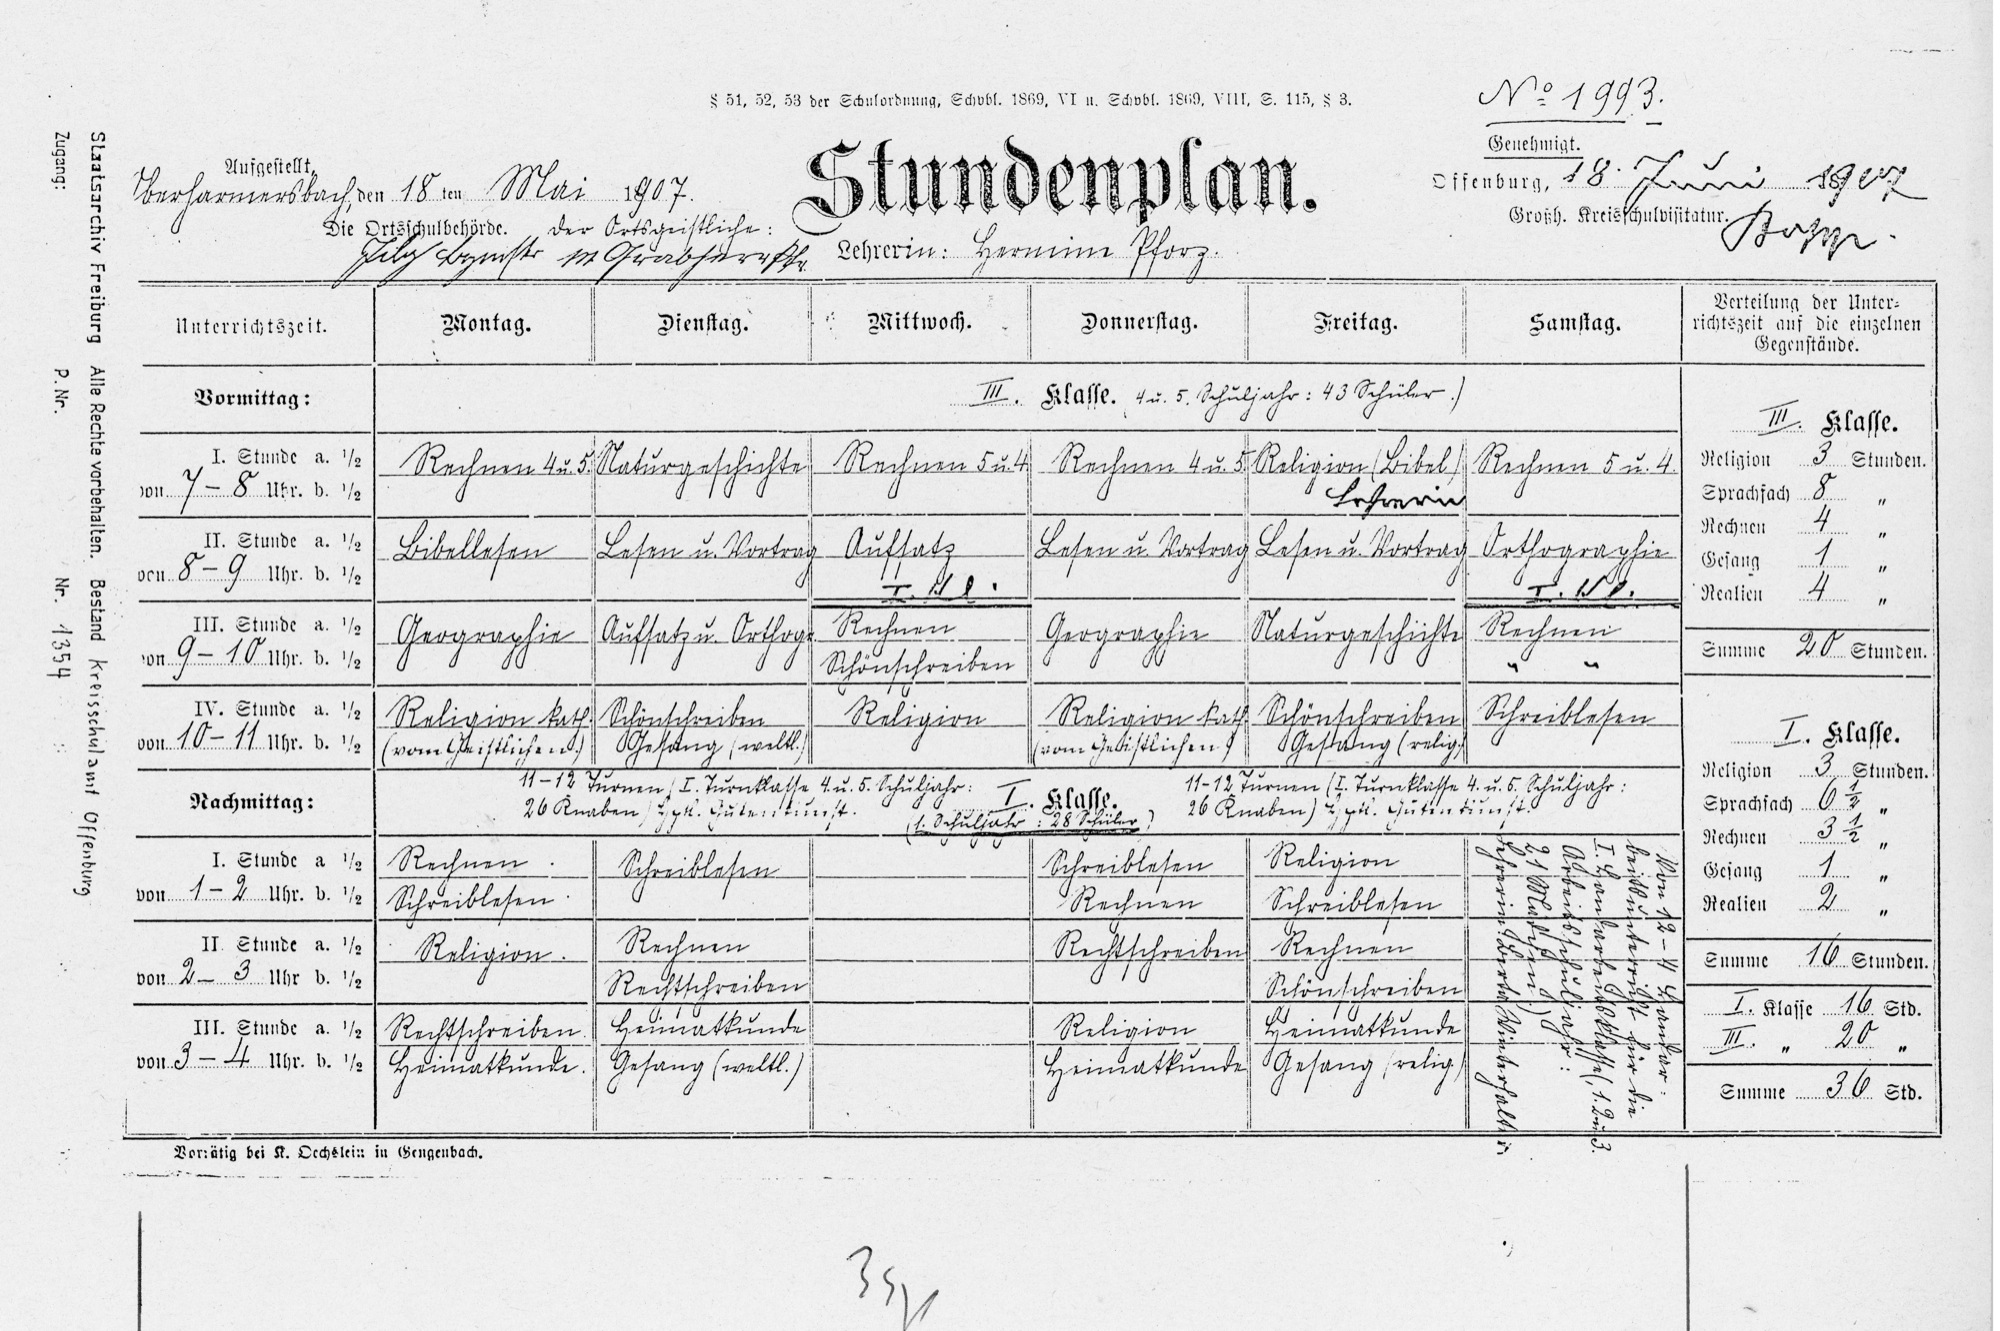 § 51, 52, 53 der Schulordnung, Schvbl. 1869, VI u. Schvbl. 1869, VIII, S. 115, § 3.
No 1993.
Stundenplan.
Aufgestellt,
Oberharmersbach, den 18 ten Mai 1907.
Die Ortsschulbehörde. Der Ortsgeistliche:
Lehrerin: Hermine Pforz.
Genehmigt.
Offenburg, 18. Juni 1907
Großh. Kreisschulvisitatur.
Unterrichtszeit. Montag. Dienstag. Mittwoch. Donnerstag. Freitag. Samstag. Verteilung der Unter-
richtszeit auf die einzelnen
Gegenstände.
Vormittag: III. Klasse. 4 u. 5. Schuljahr: 43 Schüler.)
I. Stunde a. 1/2
von 7-8 Uhr. b. 1/2
Rechnen 4 u. 5. Naturgeschichte Rechnen 5 u. 4 Rechnen 4 u. 5. Religion (Bibel) Rechnen 5 u. 4.
Lehrerin
II. Stunde a. 1/2
von 8-9 Uhr. b. 1/2
Bibellesen Lesen u. Vortrag Aufsatz Lesen u. Vortrag Lesen u. Vortrag Orthographie
I. Kl. I. Kl.
III. Stunde a. 1/2
von 9-10 Uhr. b. 1/2
Geographie Aufsatz u. Orthogr. Rechnen Geographie Naturgeschichte Rechnen
Schönschreiben " "
IV. Stunde a. 1/2
von 10-11 Uhr. b. 1/2
Religion kath. Schönschreiben Religion Religion kath. Schönschreiben Schreiblesen
(vom Geistlichen.) Gesang (weltl.) (vom Geistlichen) Gesang (relig.)
Nachmittag:
11-12 Turnen (I. Turnklasse 4. u. 5. Schuljahr:
26 Knaben)
I. Klasse.
(1. Schuljahr: 28 Schüler)
11-12 Turnen (I. Turnklasse 4. u. 5. Schuljahr:
26 Knaben)
I. Stunde a 1/2
von 1-2 Uhr. b. 1/2
Rechnen. Schreiblesen Schreiblesen Religion
Schreiblesen. Rechnen Schreiblesen
II. Stunde a. 1/2
von 2-3 Uhr b. 1/2
Religion. Rechnen Rechtschreiben Rechnen
Rechtschreiben Schönschreiben
III. Stunde a. 1/2
von 3-4 Uhr. b. 1/2
Rechtschreiben. Heimatkunde Religion Heimatkunde
Heimatkunde. Gesang (weltl.) Heimatkunde Gesang (relig.)
Von 12-4 Handar-
beitsunterricht für die
I. Handarbeitsklasse (1. 2. u. 3.
Arbeitsschuljahr:
21 Mädchen.)
Lehrerin: Berta Winterhalter
III. Klasse.
Religion 3 Stunden.
Sprachfach 8 "
Rechnen 4 "
Gesang 1 "
Realien 4 "
Summe 20 Stunden.
I. Klasse.
Religion 3 Stunden.
Sprachfach 6 1/2 "
Rechnen 3 1/2 "
Gesang 1 "
Realien 2 "
Summe 16 Stunden.
I. Klasse 16 Std.
III. " 20 "
Summe 36 Std.
Vorrätig bei K. Oechslein in Gengenbach.
Staatsarchiv Freiburg Alle Rechte vorbehalten. Bestand Kreisschulamt Offenburg
Zugang: P. Nr. Nr. 1354